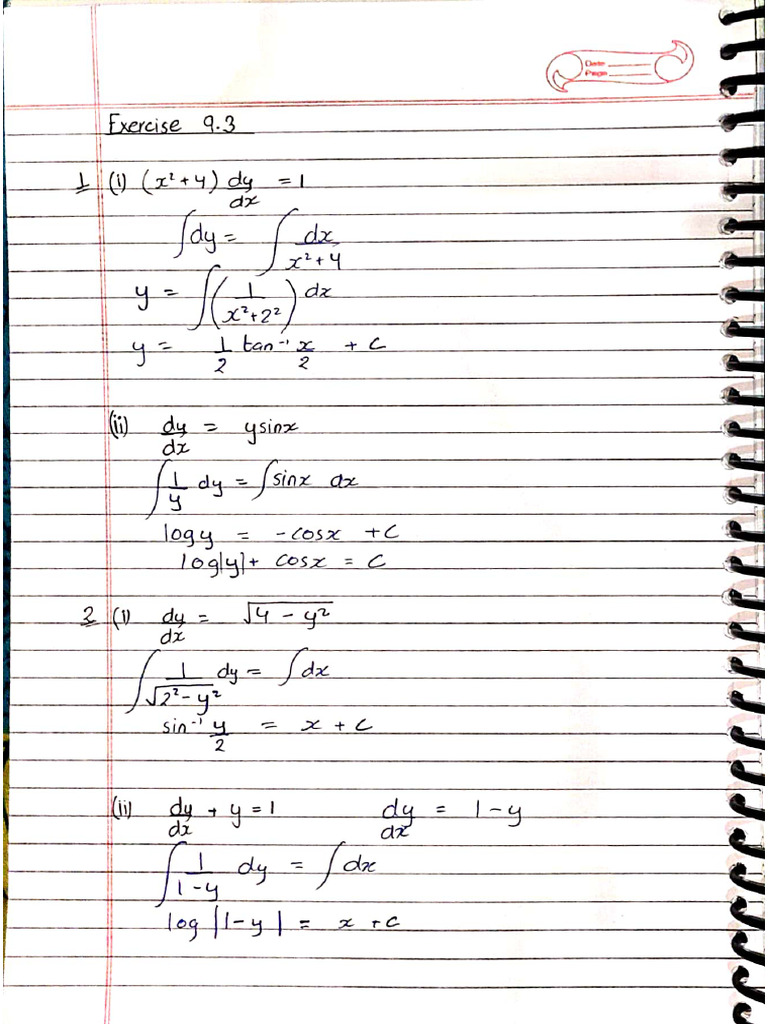 Date
Page
Exercise 9.3
1 (i) (x² + 4) dy/dx = 1
∫dy = ∫ dx/(x² + 4)
y = ∫(1/(x² + 2²)) dx
y = 1/2 tan⁻¹ x/2 + c
(ii) dy/dx = y sinx
∫ 1/y dy = ∫ sinx dx
log y = -cosx + c
log|y| + cosx = c
2 (i) dy/dx = √(4 - y²)
∫ 1/√(2² - y²) dy = ∫ dx
sin⁻¹ y/2 = x + c
(ii) dy/dx + y = 1 dy/dx = 1 - y
∫ 1/(1 - y) dy = ∫ dx
log |1 - y| = x + c